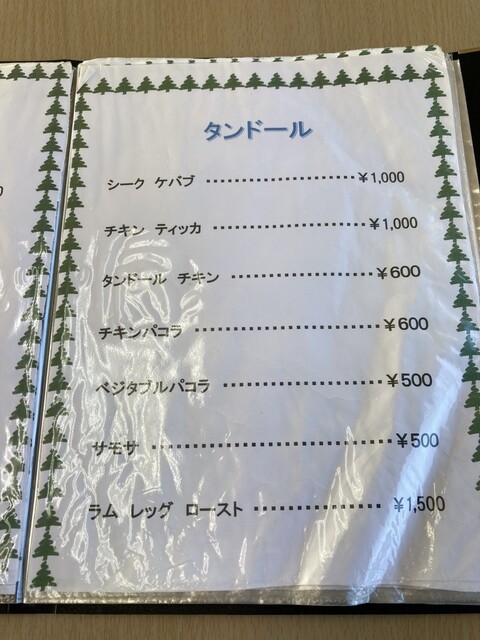 タンドール
シーク ケバブ ･････････････････････ ¥1,000
チキン ティッカ ･････････････････････ ¥1,000
タンドール チキン ･････････････････････ ¥600
チキンパコラ ･･････････････････････････ ¥600
ベジタブルパコラ ･･･････････････････････ ¥500
サモサ ･･･････････････････････････････････ ¥500
ラム レッグ ロースト ･･････････････････ ¥1,500